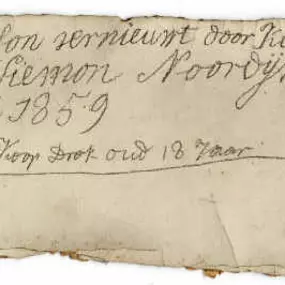 son vernieuwt door K
Siemon Noordij
1859
Koop Drok oud 18 Jaar